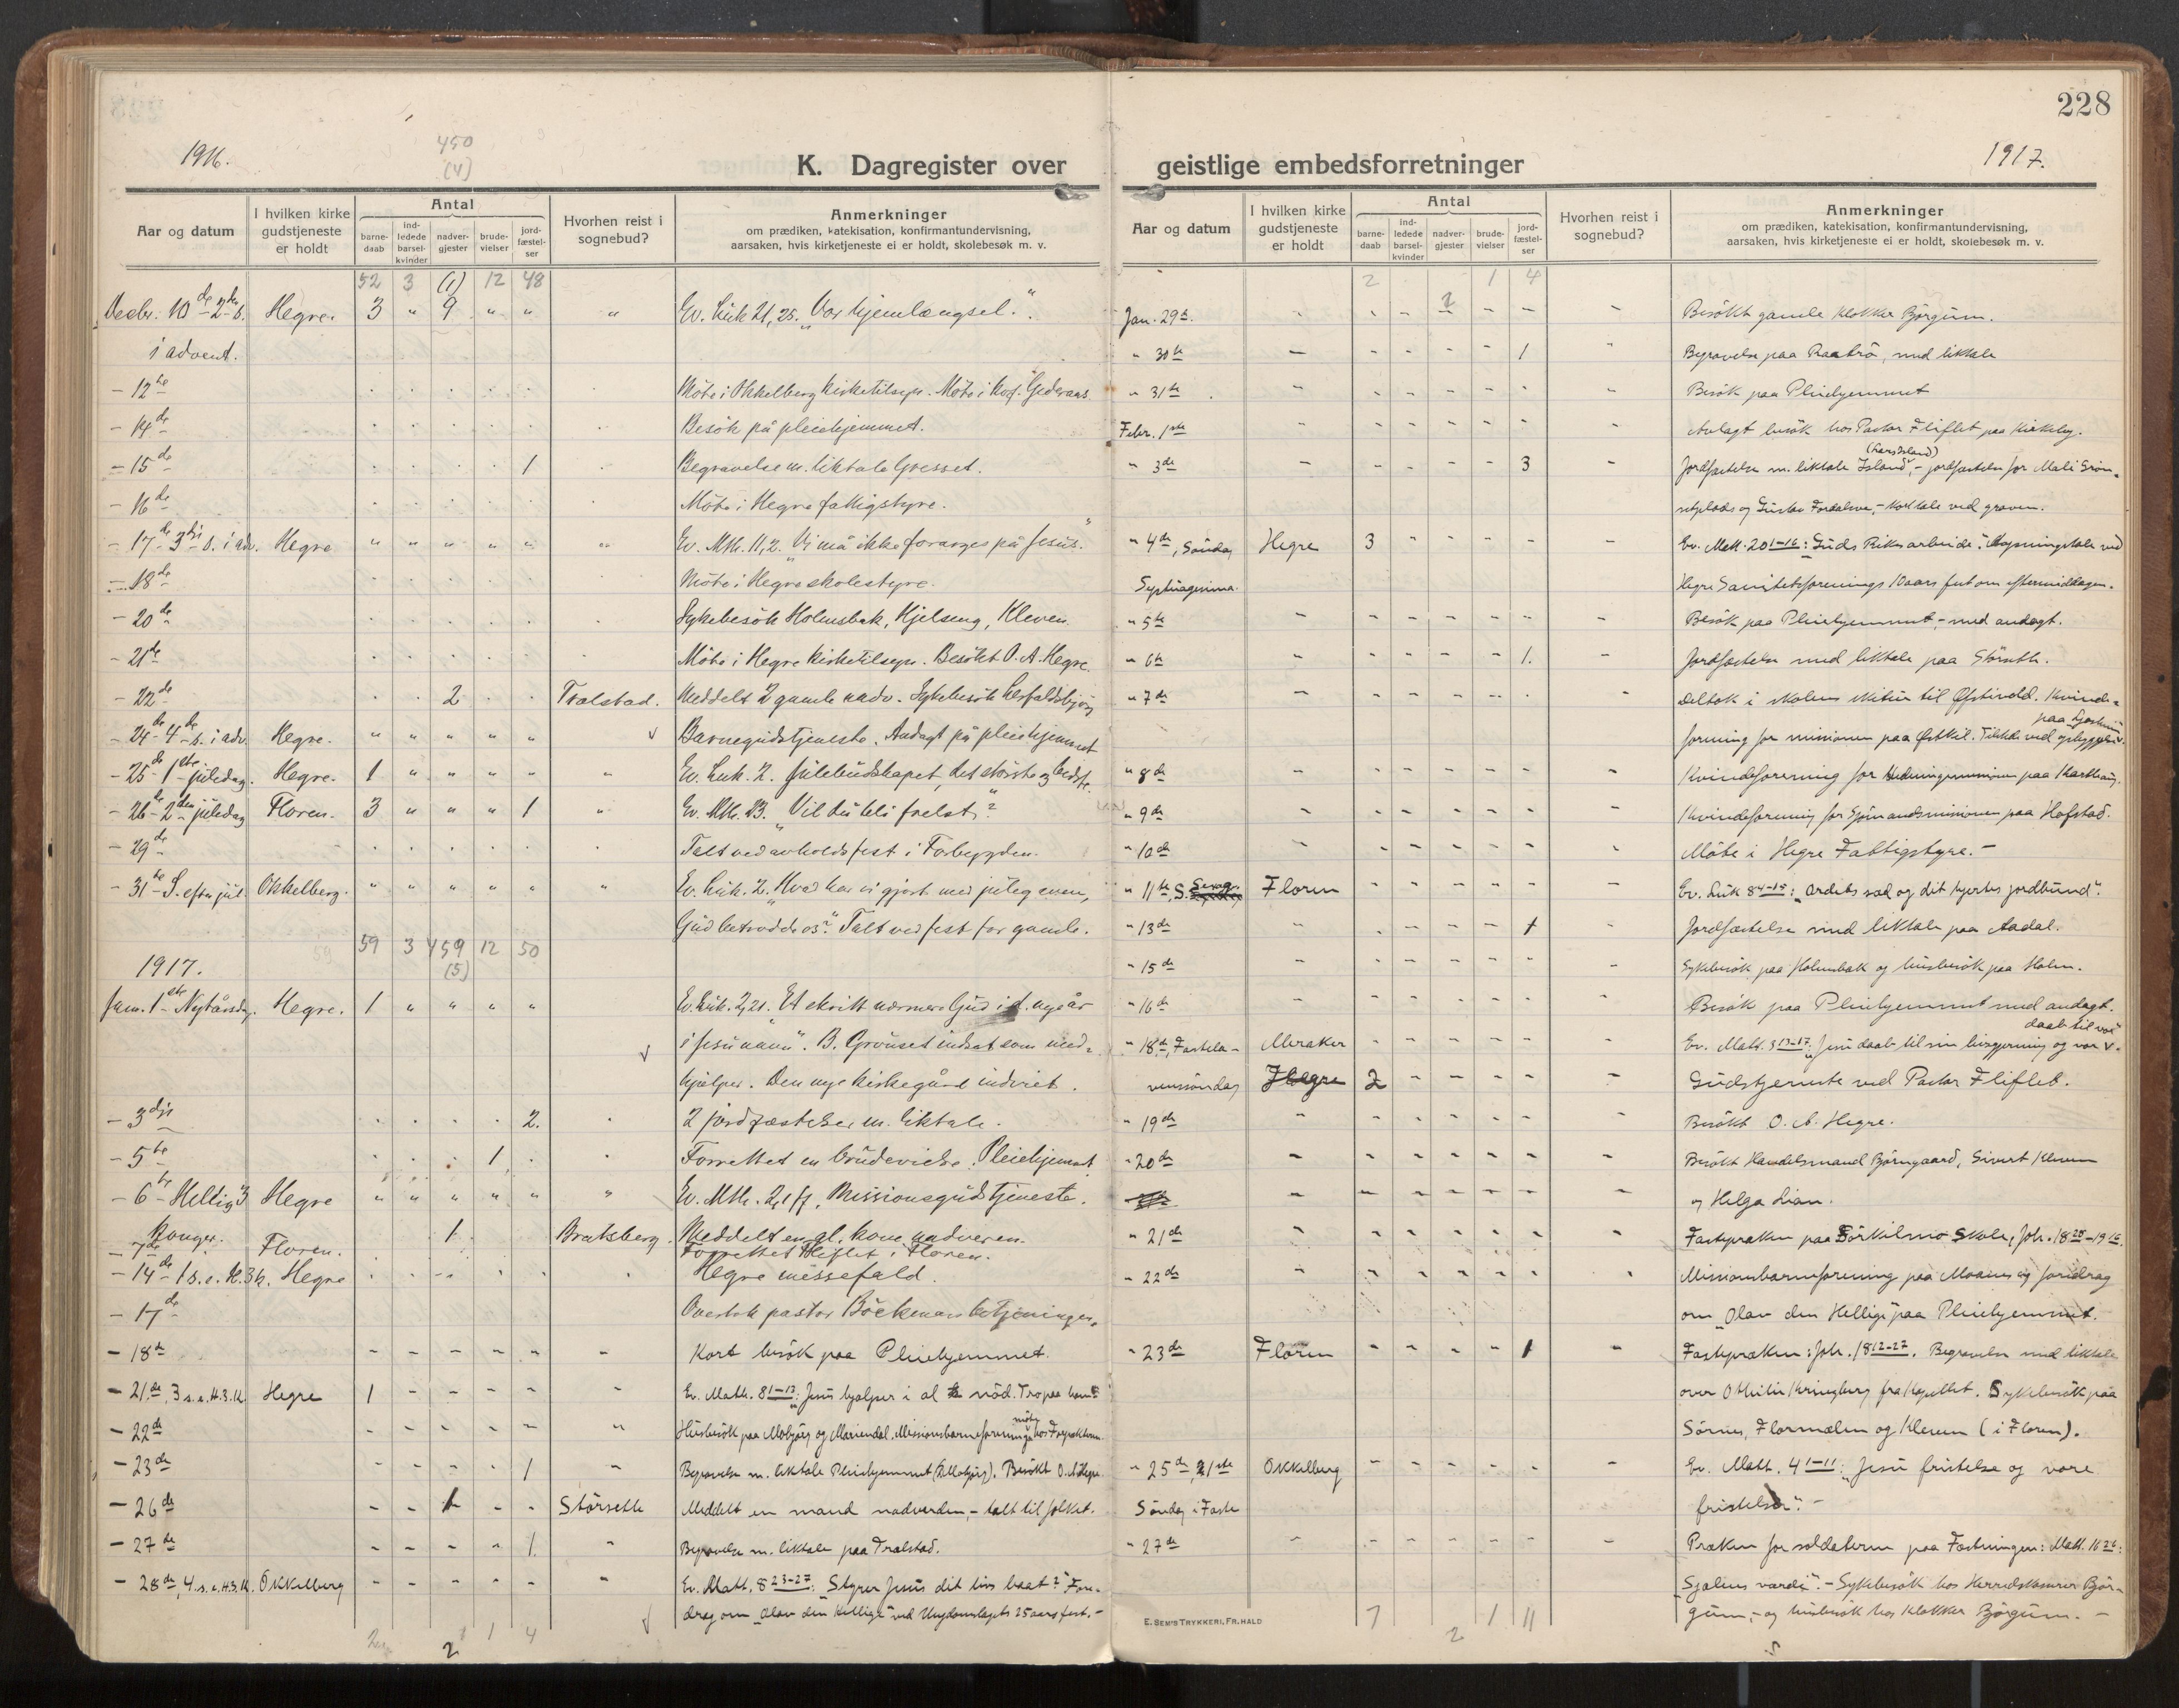 228
1916.
450
(4)
K. Dagregister over geistlige embedsforretninger
1917.
Aar og datum
I hvilken kirke gudstjeneste er holdt
Antal
barnedaab
indledede barselkvinder
nadvergjester
brudevielser
jordfæstelser
Hvorhen reist i sognebud?
Anmerkninger
om prædiken, katekisation, konfirmantundervisning,
aarsaken, hvis kirketjeneste ei er holdt, skolebesøk m. v.
52 3 (1) 12 48
Decbr. 10de 2den s. Hegre. 3 " 9 " " " Ev. Luk 21, 25. „Vor hjemlængsel.".
i advent.
- 12te Möte i Okkelberg kirketilsyn. Möte i
- 14de Besök på pleiehjemmet.
- 15de 1 Begravelse m. liktale Gresset.
- 16de Möte i Hegre fattigstyre.
- 17de 3dje s. i adv. Hegre " " " " " " Ev. Mth. 11,2. „Vi må ikke forarges på Jesus."
- 18de Möte i Hegre skolestyre.
- 20de Sykebesök Holmsbak, Hjelseng, Kleven.
- 21de Möte i Hegre kirketilsyn. Besökt O. A. Hegre.
- 22de 2 Trælstad. Meddelt 2 gamle nadv. Sykebesök
- 24de 4de s. i adv. Hegre. " " " " " Barnegudstjeneste. Andagt på pleiehjemmet
- 25de 1ste juledag. Hegre. 1 " " " " " Ev. Luk. 2. Julebudskapet, det største og bedste.
- 26de 2den juledag Floren. 3 " " " 1 " Ev. Mth. 23. „Vil du bli frelst"?
- 29de Talt ved avholdsfest i Forbygden.
- 31te S. efter jul. Okkelberg. " " " " " " Ev. Luk. 2. „Hvad har vi gjort med julegaven,
Gud betrodde os?" Talt ved fest for gamle.
59 59 3 459 12 50
(5)
1917.
Jan. 1ste Nytårsdg. Hegre. 1 " " " " Ev. Luk. 2,21. „Et skritt nærmere Gud i d. nye år
i Jesu navn". B. Grönset indsat som med-
hjælper. Den nye kirkegård indviet.
- 3dje 2. 2 jordfæstelser m. liktale.
- 5te 1 Forrettet en brudevielse. Pleiehjemmet
- 6te Hellig 3 Hegre " " " " " " Ev. Mth. 2,1 ff. Missionsgudstjeneste.
Konger. 1 Bratsberg. Meddelt en gl. kone nadveren.
- 7de Floren. Forrettet Fliflet i Floren.
- 14de 1 s. e. H.3k. Hegre Hegre messefald.
- 17de Overtok pastor Böckmans betjeninger.
- 18de - - - - - - Kort besök paa Pleiehjemmet.
- 21de, 3 s. e. H.3.K. Hegre 1 - - - - " Ev. Math. 8 1-13: „Jesus hjælper i al nöd. Tro paa ham"
- 22de - - - - - " Husbesök paa Mobjörg og Mariendal. Missionsbarneforeningsmöte hos
- 23de - - - - 1 - Begravelse m. liktale Pleiehjemmet (Mobjörg). Besökt O. A. Hegre.
- 26de - - 1 - - Störsette Meddelt en mand nadverden, - talt til folket.
- 27de - - - - 1. " Begravelse m. liktale paa Trælstad.
- 28de, 4. s. e. H.3.K. Okkelberg - - - - - - Ev. Matt. 8 23-27: „Styrer Jesus dit livs baat?" For-
drag om „Olav den Hellige" ved Ungdomslagets 25 aars fest. -
2 2 1 4
Aar og datum
I hvilken kirke gudstjeneste er holdt
Antal
barnedaab
indledede barselkvinder
nadvergjester
brudevielser
jordfæstelser
Hvorhen reist i sognebud?
Anmerkninger
om prædiken, katekisation, konfirmantundervisning,
aarsaken, hvis kirketjeneste ei er holdt, skolebesøk m. v.
2 2 1 4
Jan. 29de - - - - - - Besökt gamle klokker Björgum.
" 30te - - - - - 1 " Begravelse paa Raabrö, med liktale
" 31te - - - - - - Besök paa Pleiehjemmet
Febr. 1ste - - - - - - - Avlagt besök hos Pastor Fliflet paa Kirkeby.
" 3de - - - - - 3 - Jordfæstelse m. liktale Island, - jordfæstelse for Mali Grön-
setplads og Gustav Fordalsve, - kort tale ved graven.
" 4de, Söndag Hegre 3 - - - - - Ev. Matt. 20 1-16: „Guds Rikes arbeide". Aapningstale ved
Septuagesima. Hegre Sanitetsforenings 10 aars fest om eftermiddagen.
" 5te - - - - - - - Besök paa Pleiehjemmet, - med andagt.
" 6te - - - - - 1. - Jordfæstelse med liktale paa Störseth.
" 7de - - - - - - Deltok i skolens skitur til Østivold. Kvinde-
forening for missionen paa Østkil.
" 8de - - - - - - - Kvindeforening for Hedningemissionen paa Karlhaug.
" 9de - - - - - - - Kvindeforening for Sjömandsmissionen paa Hofstad.
" 10de - - - - - - Möte i Hegre Fattigstyre. -
" 11te, S. Sexag. Floren - - - - - - Ev. Luk 8 4-15: „Ordets sæd og dit hjertes jordbund".
" 13de - - - - - 1 - Jordfæstelse med liktale paa Aadal.
" 15de - - - - - - - Sykebesök paa Holmsbak og husbesök paa Holm.
" 16de - - - - - - - Besök paa Pleiehjemmet med andagt.
" 18de, Fastela- Meraker - - - - - - Ev. Matt. 3 13-17: „Jesu daab til sin livsgjerning og vor daab til vor".
venssöndag Hegre 2 - - - - - Gudstjeneste ved Pastor Fliflet.
" 19de - - - - - - - Besökt O. A. Hegre.
" 20de - - - - - - - Besökt Handelsmand Björngaard, Sivert Kleven
og Helga Lian.
" 21de - - - - - - - Fastepræken paa Sörkilmo Skole, Joh. 18 28-19 16.
" 22de - - - - - - Missionsbarneforening paa Moanes og foredrag
om „Olav den Hellige" paa Pleiehjemmet.
" 23de Floren - - - - 1 - Fastepræken: Joh. 18 12-27. Begravelse med liktale
over Othilie Kringberg fra Kapellet. Sykebesök paa
Sörnes, Flormælen og Kleven (i Floren).
" 25de, 1ste Okkelberg - - - - - - Ev. Matt. 4 1-11: „Jesu fristelse og vore
Söndag i Faste fristelser". -
" 27de - - - - - - - Præken for soldaterne paa Fæstningen: Matt. 16 26:
„Sjælens værdi". - Sykebesök hos Herredskasserer Björ-
gum, - og husbesök hos klokker Björgum. -
7 2 1 11
E. SEM'S TRYKKERI, FR.HALD